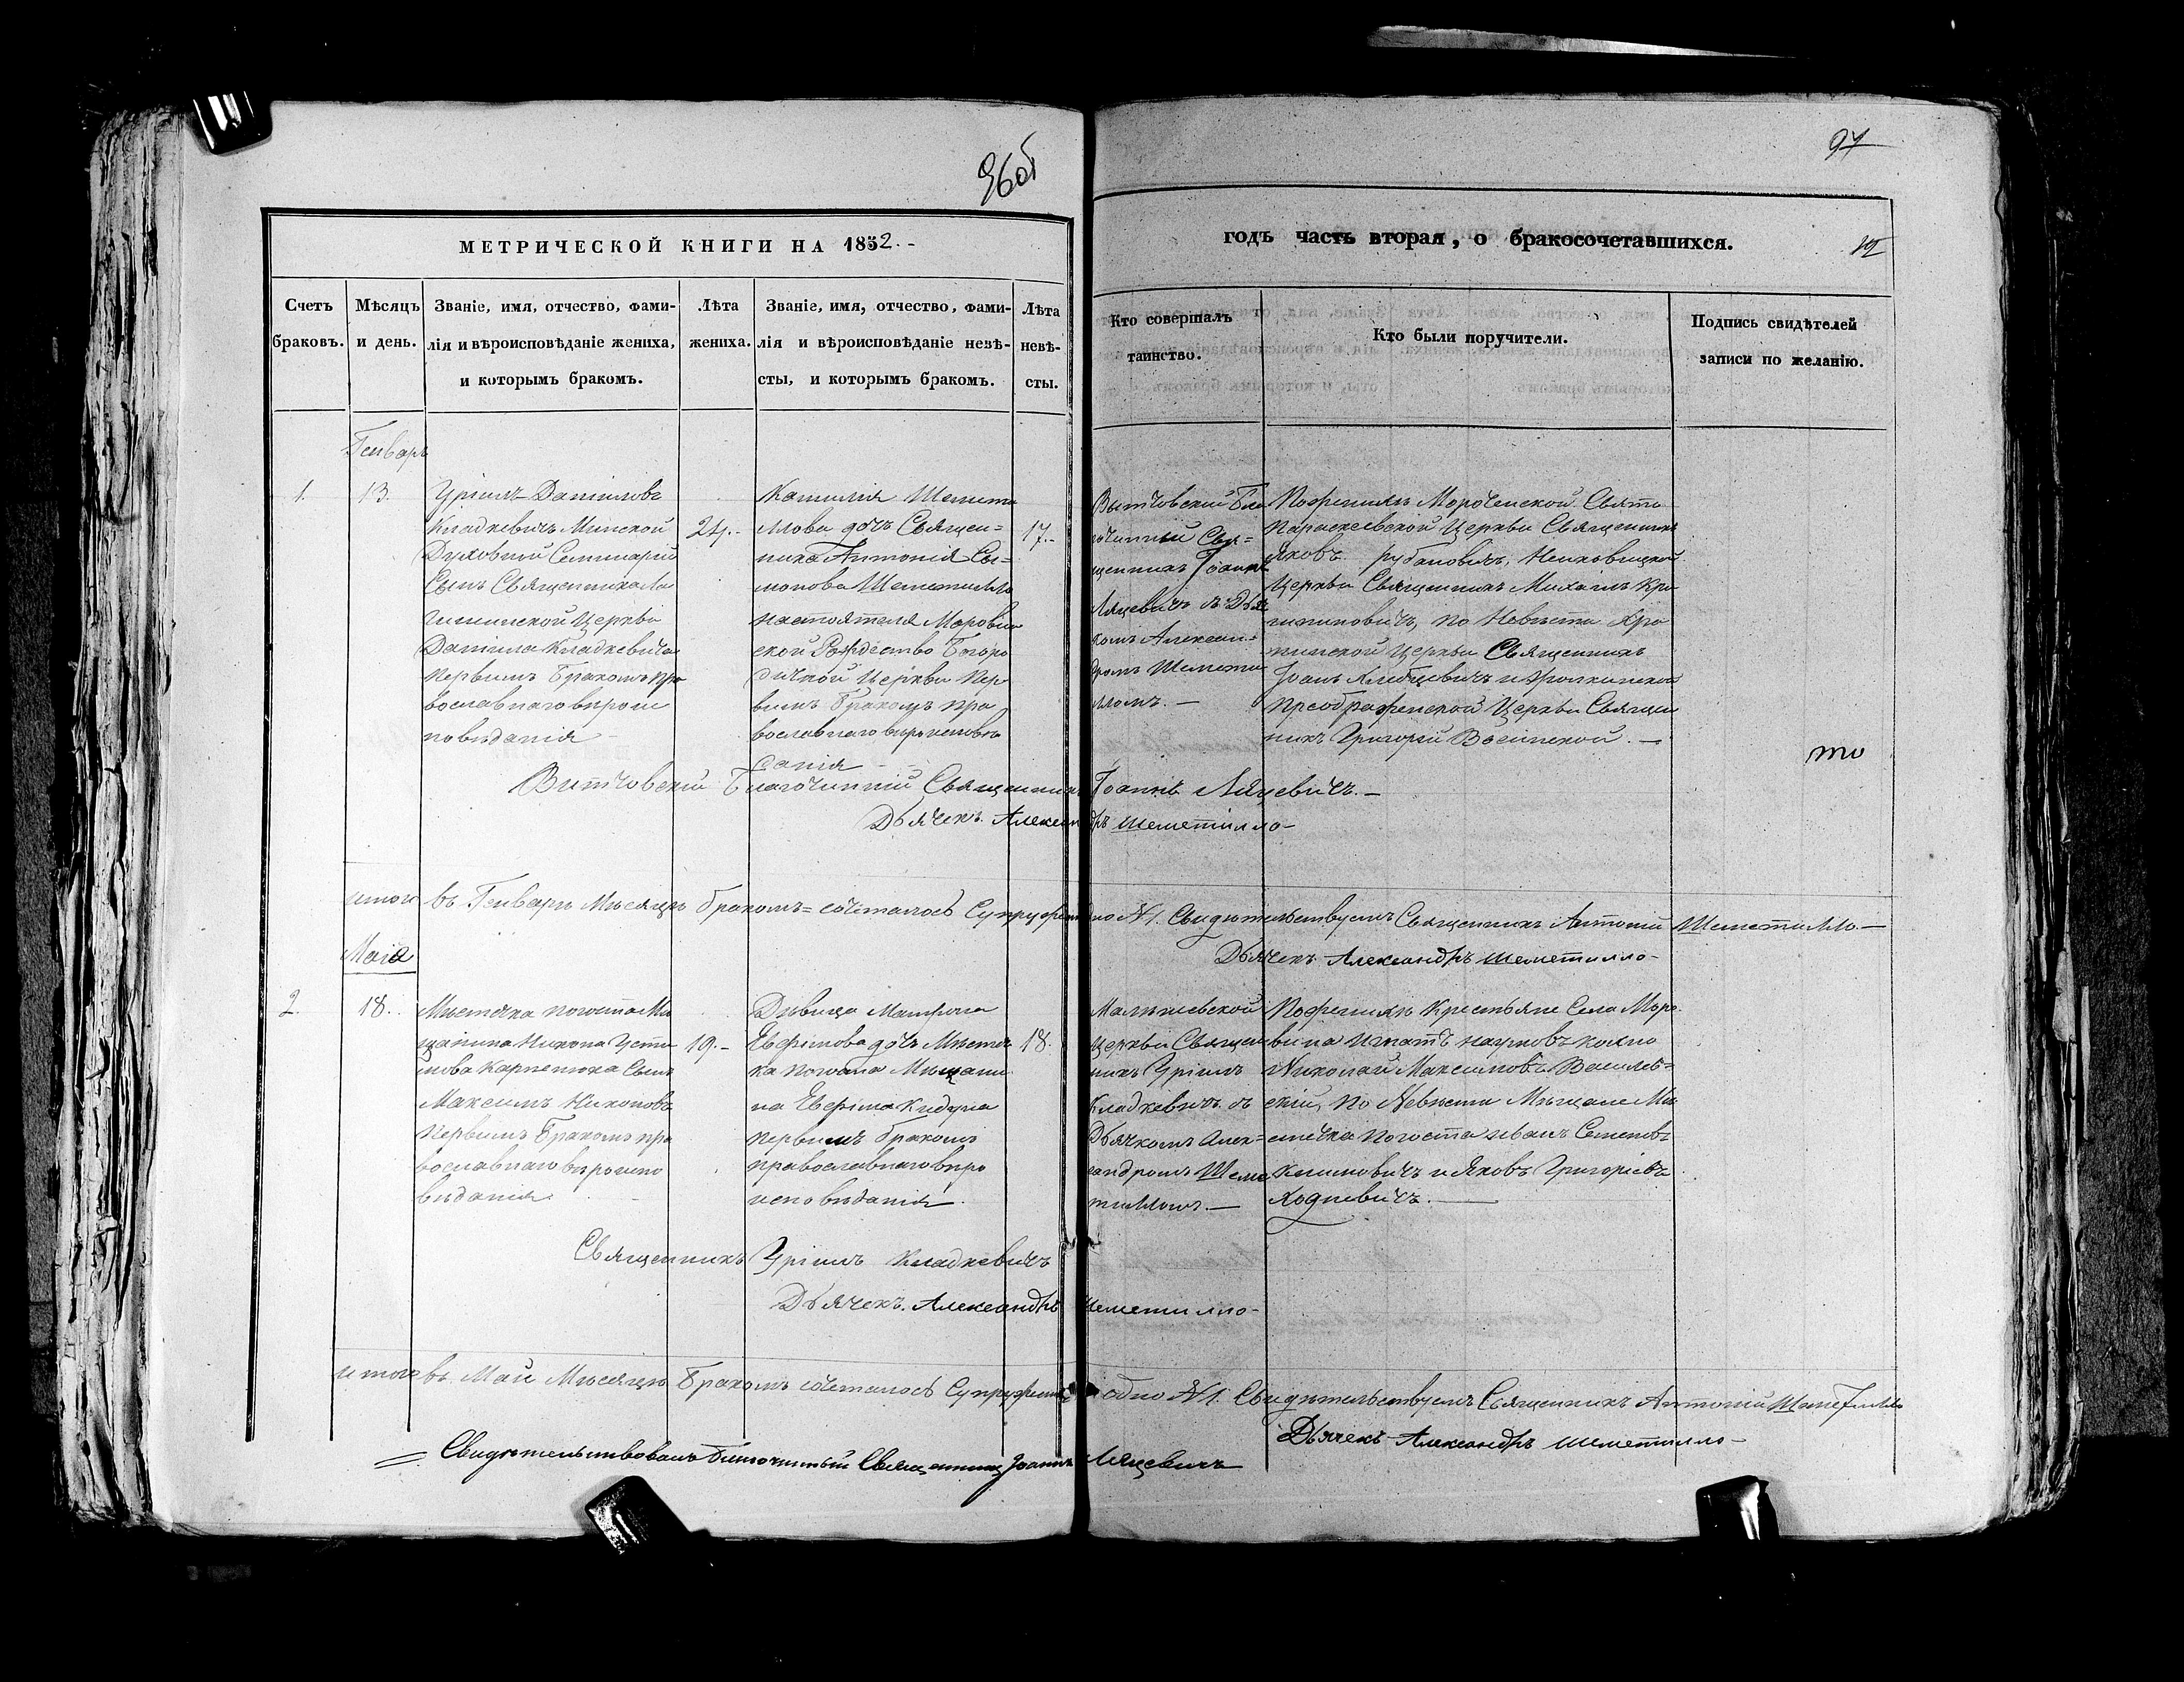 96об
97
МЕТРИЧЕСКОЙ КНИГИ НА 1852.-
годъ часть вторая, о бракосочетавшихся.
Счетъ браковъ.
Мѣсяцъ и день.
Званіе, имя, отчество, фами-
лія и вѣроисповѣданіе жениха,
и которымъ бракомъ.
Лѣта
жениха.
Званіе, имя, отчество, фами-
лія и вѣроисповѣданіе невѣ-
сты, и которымъ бракомъ.
Лѣта
невѣ-
сты.
Кто совершалъ
таинство.
Кто были поручители.
Подпись свидѣтелей
записи по желанію.
Генварь
1.
13.
Уріилъ Даніиловъ
Кладкевичъ Минской
Духовной Семинаріи
Сынъ Священника
Церкви
Даніила Кладкевича
Первымъ Бракомъ пра
вославнаго вѣроис
повѣданія
24.-
Камилія Шемети
ллова дочь Священ=
ника Антонія Си=
монова Шеметилло
настоятеляМорови
ской Рождество Богоро
дичной Церкви Пер
вымъ бракомъ пра
вославнаго вѣроисповѣ
данія
17.-
Вытчовскій Бла
гочинный Свя=
щенникъ Іоаннъ
Ляцевичъ съ Дья
комъ Алексан=
дромъ Шемети
лломъ.-
По женихѣ Мороченской Свято
Параскевской Церкви Священникъ
Яковъ Рубановичъ,
Церкви Священникъ Михаилъ
по Невѣсти
Церкви Священникъ
Іоанъ
Преображенской Церкви Священ
никъ Григорій
то
Витчовскій Благочинній Священникъ Іоаннъ Ляцевичъ.-
Дьячекъ Александръ Шеметилло-
итого въ Генварѣ Мѣсяцѣ бракомъ=сочеталось Супружество одно №1. Свидѣтельствуемъ Священникъ Антоній Шеметилло.-
Дьячекъ Александръ Шеметилло-
Маія
2.
18.
Мѣстечка Погоста Мѣ
щанина Никона Усти
нова Карпенюка Сынъ
Максимъ Никоновъ
Первымъ Бракомъ пра
вославнаго вѣроиспо
вѣданія
19.-
Дѣвица Матрона
Евфимова дочь Мѣстеч
ка Погоста Мѣщани
на Евфима
Первымъ бракомъ
православнаго вѣро
исповѣданія
18.
Церкви Священ
никъ Уріилъ
Кладкевичъ съ
Дьячкомъ Алек=
сандромъ Шеме
тилломъ.-
По женихѣ Крестьяне Села Моро
вина Игнатъ Наумовъ
Николай Максимовъ Василев=
скій, по Невѣсти Мѣщане Мѣ
стечка Погоста Иванъ Семеновъ
Климовичъ и Яковъ Григоріевъ
Ходневичъ.
Священникъ Уріилъ Кладкевичъ
Дьячекъ Александръ Шеметилло-
итого въ Маи Мѣсяцѣ Бракомъ сочеталось Супружество одно №1. Свидѣтельствуемъ Священникъ Антоній Шеметилло
Дьячекъ Александръ Шеметилло-
Свидѣтельствовалъ Благочинный Священникъ Іоаннъ Ляцевичъ